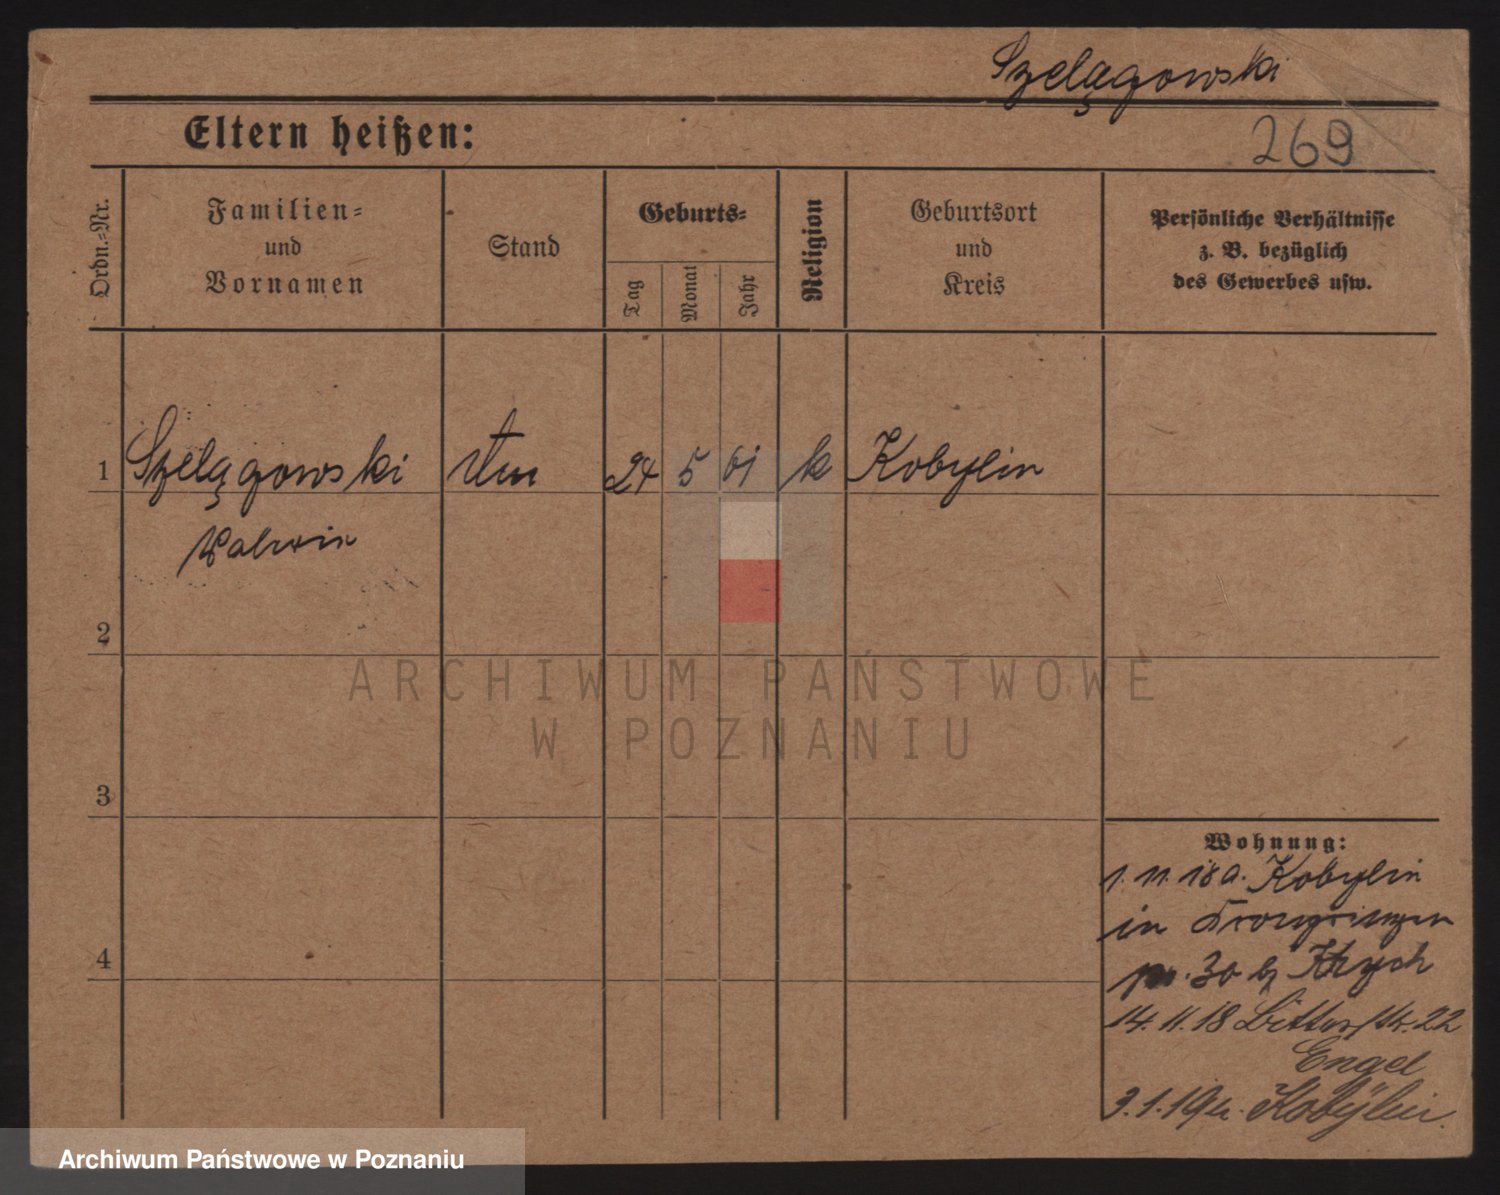 Szelągowski
Eltern heißen:
269
Ordn.=Nr.
Familien=
und
Vornamen
Stand
Geburts=
Tag
Monat
Jahr
Religion
Geburtsort
und
Kreis
Persönliche Verhältnisse
z. B. bezüglich
des Gewerbes usw.
1 Szelągowski 24 5 61 k Kobylin
2
3
4
Wohnung:
1.11.18 a. Kobylin
in Kronprinzen
30 b
14.11.18 str. 22
Engel
3.1.19 n. Kobylin.
ARCHIWUM PAŃSTWOWE
W POZNANIU
Archiwum Państwowe w Poznaniu